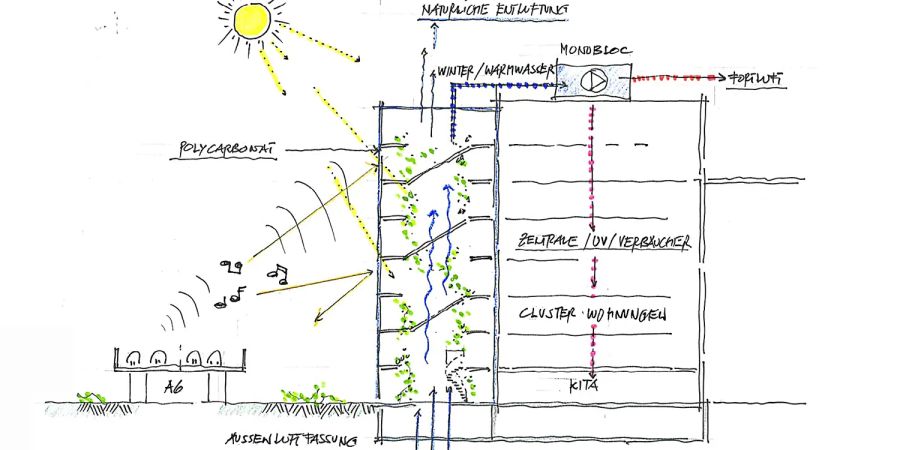 NATÜRLICHE ENTLÜFTUNG
MONOBLOC
WINTER/WARMWASSER
FORTLUFT
POLYCARBONAT
ZENTRALE/UV/VERBAUCHER
CLUSTER-WOHNUNGEN
A6
KITA
AUSSENLUFTFASSUNG